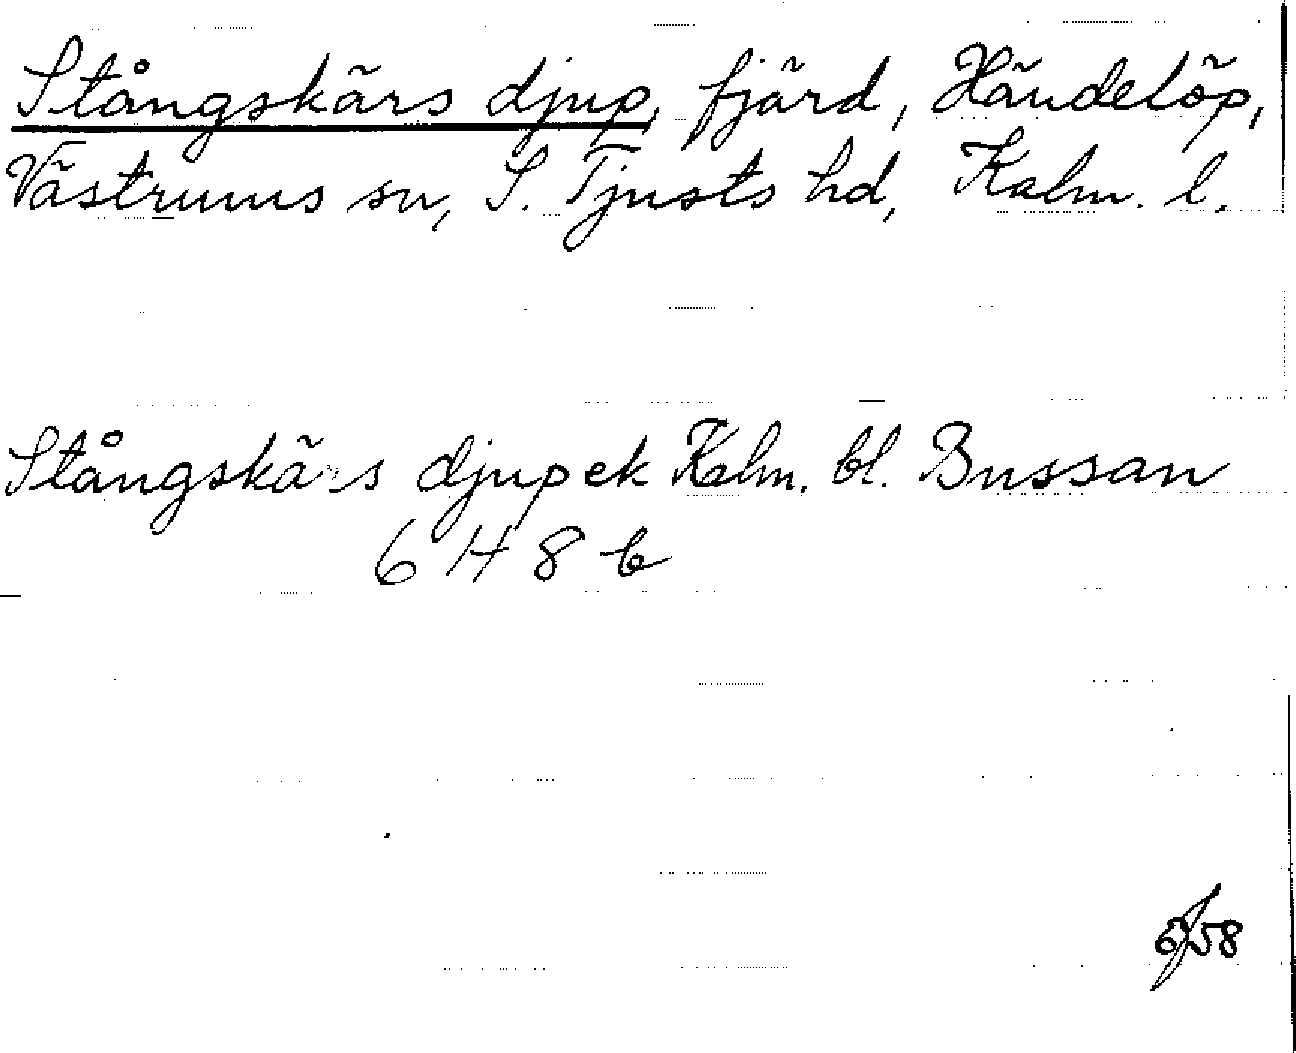 Stångskärs djup, fjärd, Händelöp,
Västrums sn, S. Tjusts hd, Kalm. l.
Stångskärs djup ek Kalm. bl. Bussan
6 H 8 b